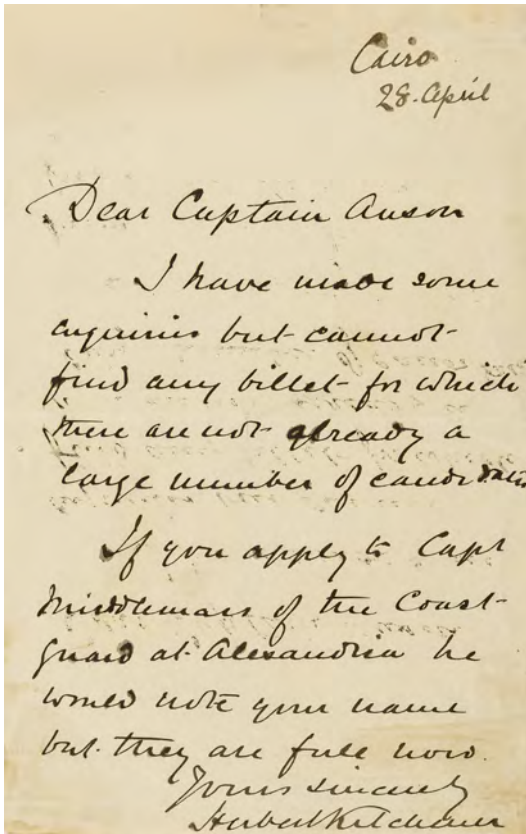 Cairo
28. April
Dear Captain Anson
I have made some
enquiries but cannot
find any billet for which
there are not already a
large number of candidates
If you apply to Capt
Middlemass of the Coast-
guard at Alexandria he
would note your name
but they are full now.
Yours sincerely
Herbert Kitchener